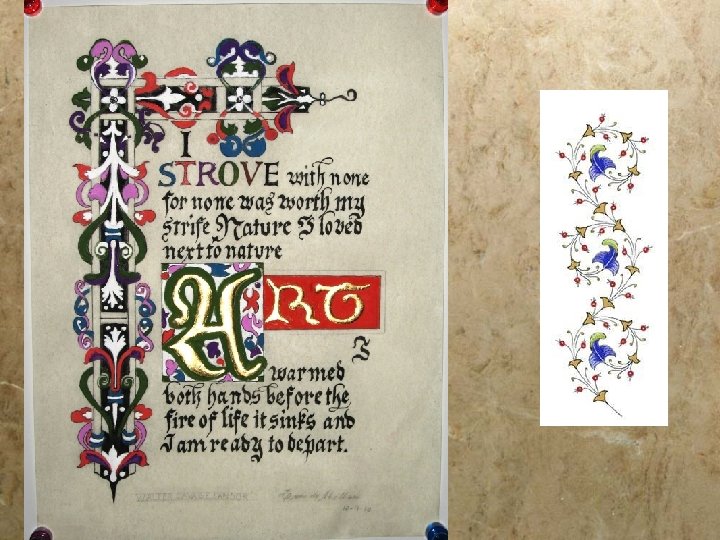 I
STROVE with none
for none was worth my
strife Nature I loved
next to nature
ART
I
warmed
both hands before the
fire of life it sinks and
I am ready to depart.
WALTER SAVAGE LANDOR